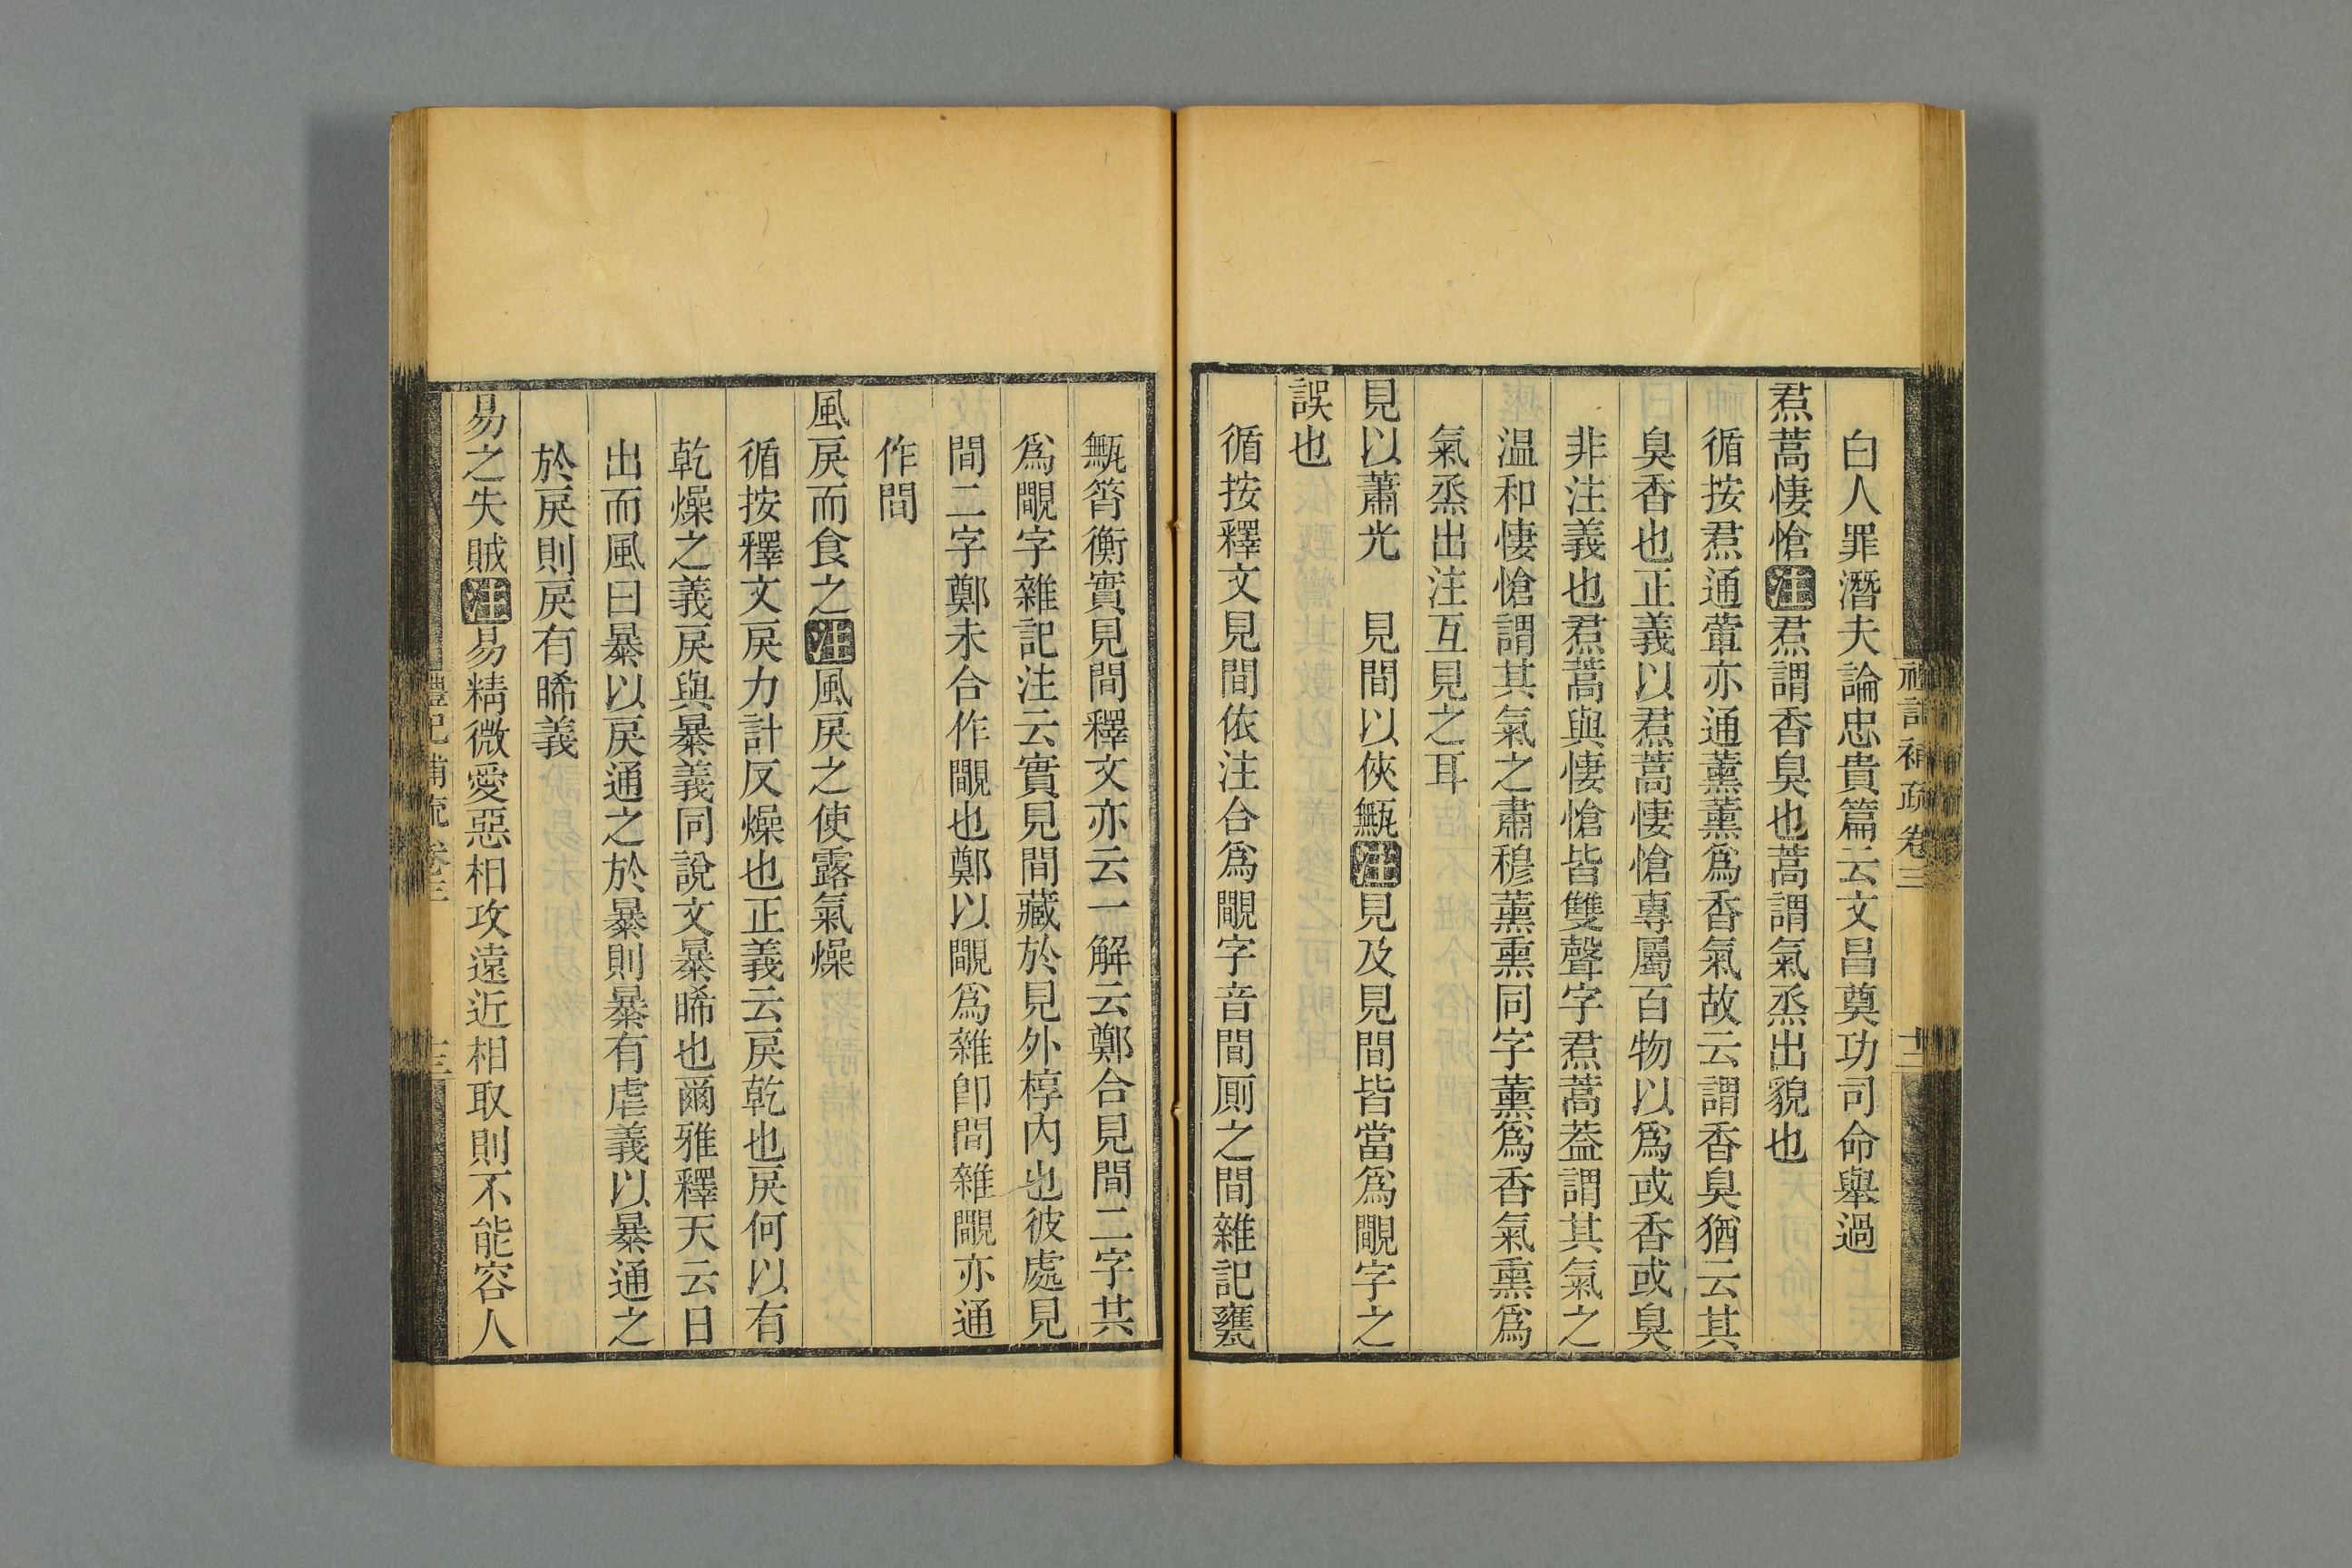 禮記補疏卷三 十二
白人罪潛夫論忠貴篇云文昌奠功司命舉過
焄蒿悽愴注焄謂香臭也蒿謂氣烝出貌也
循按焄通葷亦通薰薰爲香氣故云謂香臭猶云其
臭香也正義以焄蒿悽愴專屬百物以爲或香或臭
非注義也焄蒿與悽愴皆雙聲字焄蒿葢謂其氣之
溫和悽愴謂其氣之肅穆薰熏同字薰爲香氣熏爲
氣烝出注互見之耳
見以蕭光 見間以俠甒注見及見間皆當爲覸字之
誤也
循按釋文見間依注合爲覸字音間厠之間雜記甕
甒筲衡實見間釋文亦云一解云鄭合見間二字共
爲覸字雜記注云實見間藏於見外椁內也彼處見
間二字鄭未合作覸也鄭以覸爲雜卽間雜覸亦通
作間
風戾而食之注風戾之使露氣燥
循按釋文戾力計反燥也正義云戾乾也戾何以有
乾燥之義戾與暴義同說文暴晞也爾雅釋天云日
出而風曰暴以戾通之於暴則暴有虐義以暴通之
於戾則戾有晞義
易之失賊注易精微愛惡相攻遠近相取則不能容人
禮記補疏卷三 十三